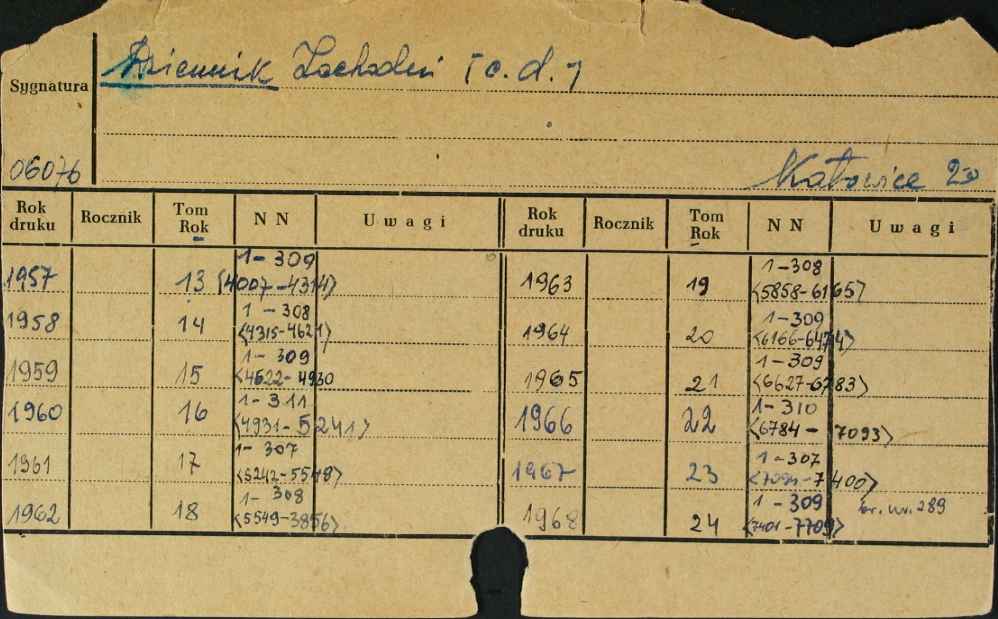 Dziennik Zachodni [c.d.]
Sygnatura
06076
Katowice 20
Rok druku Rocznik Tom Rok NN Uwagi Rok druku Rocznik Tom Rok NN Uwagi
1957 13 1-309 <4007-4314>
1958 14 1-308 <4315-4621>
1959 15 1-309 <4622-4930
1960 16 1-311 <4931-5241>
1961 17 1-307 <5242-5548>
1962 18 1-308 <5549-3856>
1963 19 1-308 <5858-6165>
1964 20 1-309 <6166-6474>
1965 21 1-309 <6627-6783>
1966 22 1-310 <6784-7093>
1967 23 1-307 <7094-7400>
1968 24 1-309 <7401-7709> br. nr. 289